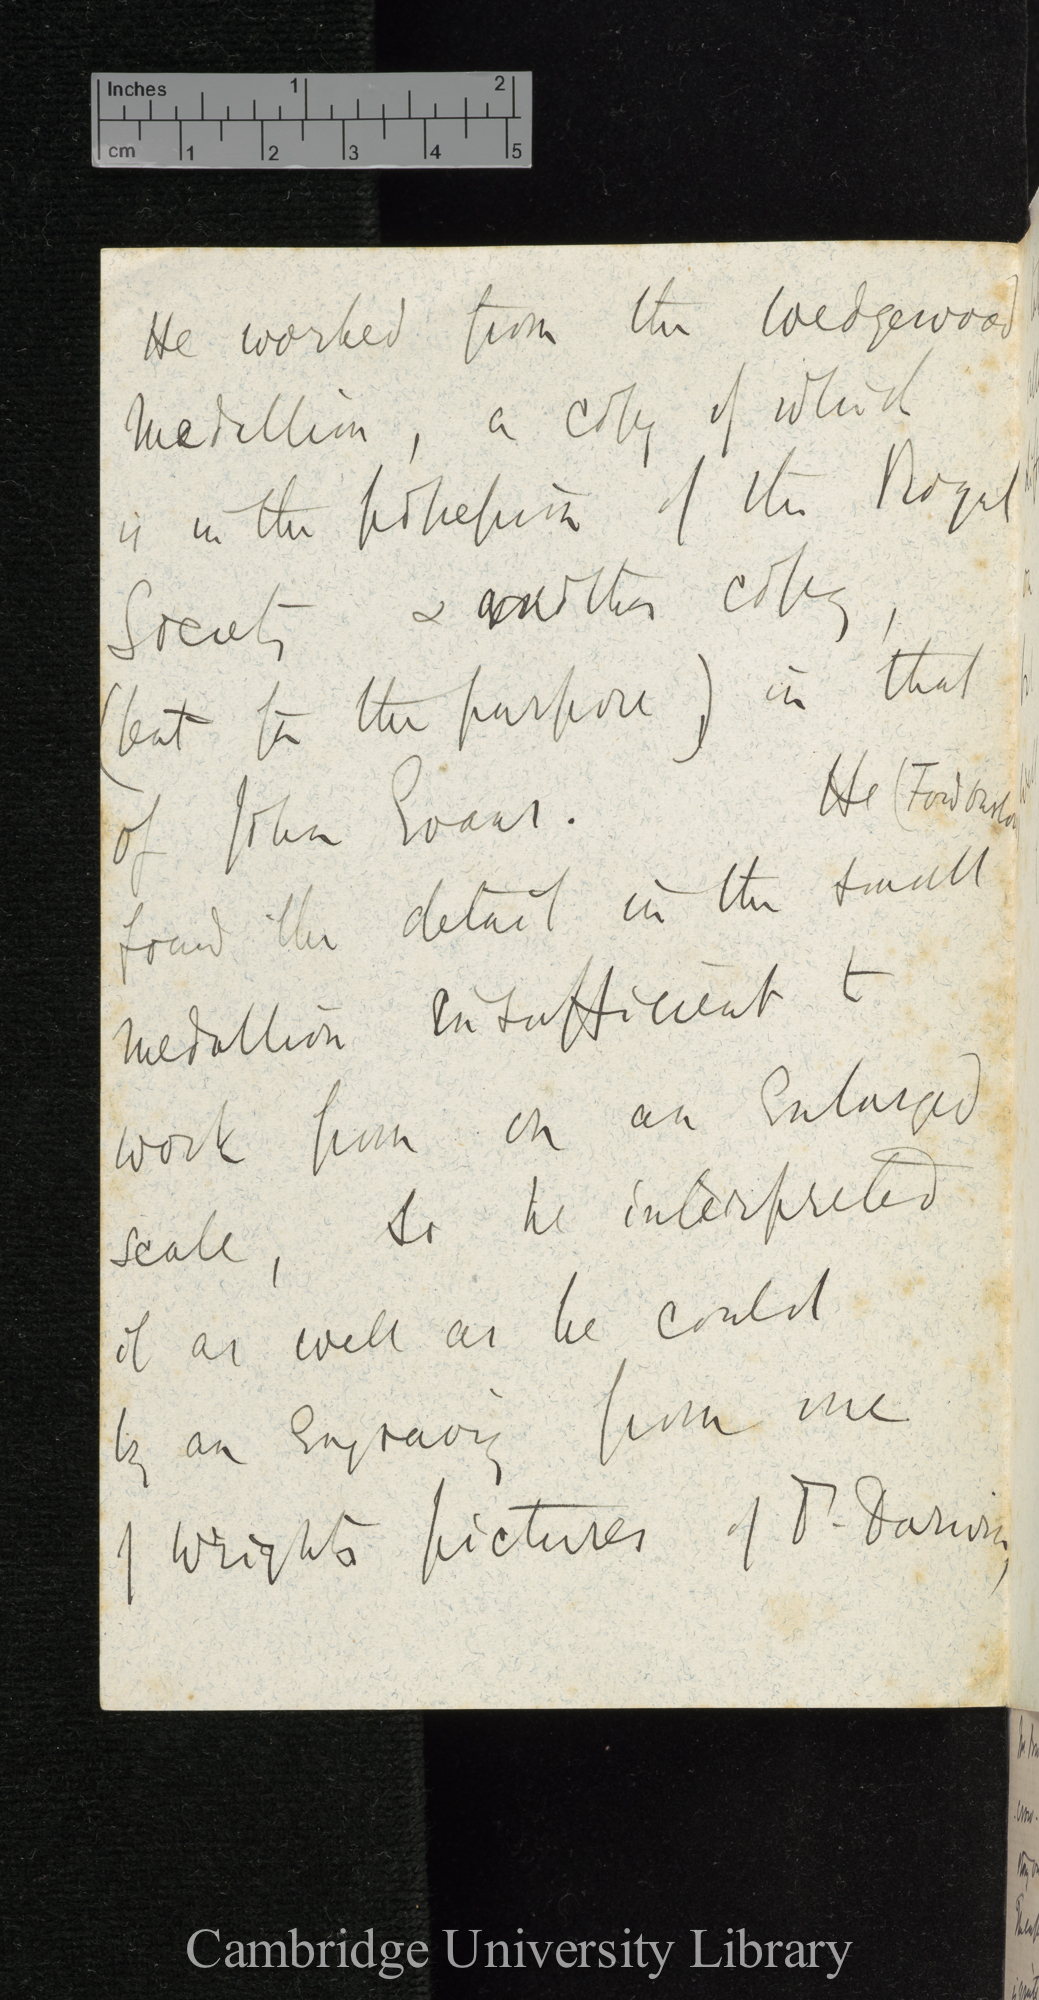 Inches 1 2
cm 1 2 3 4 5
He worked from the Wedgewood
Medallion, a copy of which
is in the possession of the Royal
Society & another copy,
(lent for the purpose) in that
of John Evans. He (Ford Onslow
found the detail in the small
medallion insufficient to
work from on an Enlarged
scale, so he interpreted
it as well as he could
by an Engraving from one
of Wrights pictures of Dr. Darwin,
Cambridge University Library